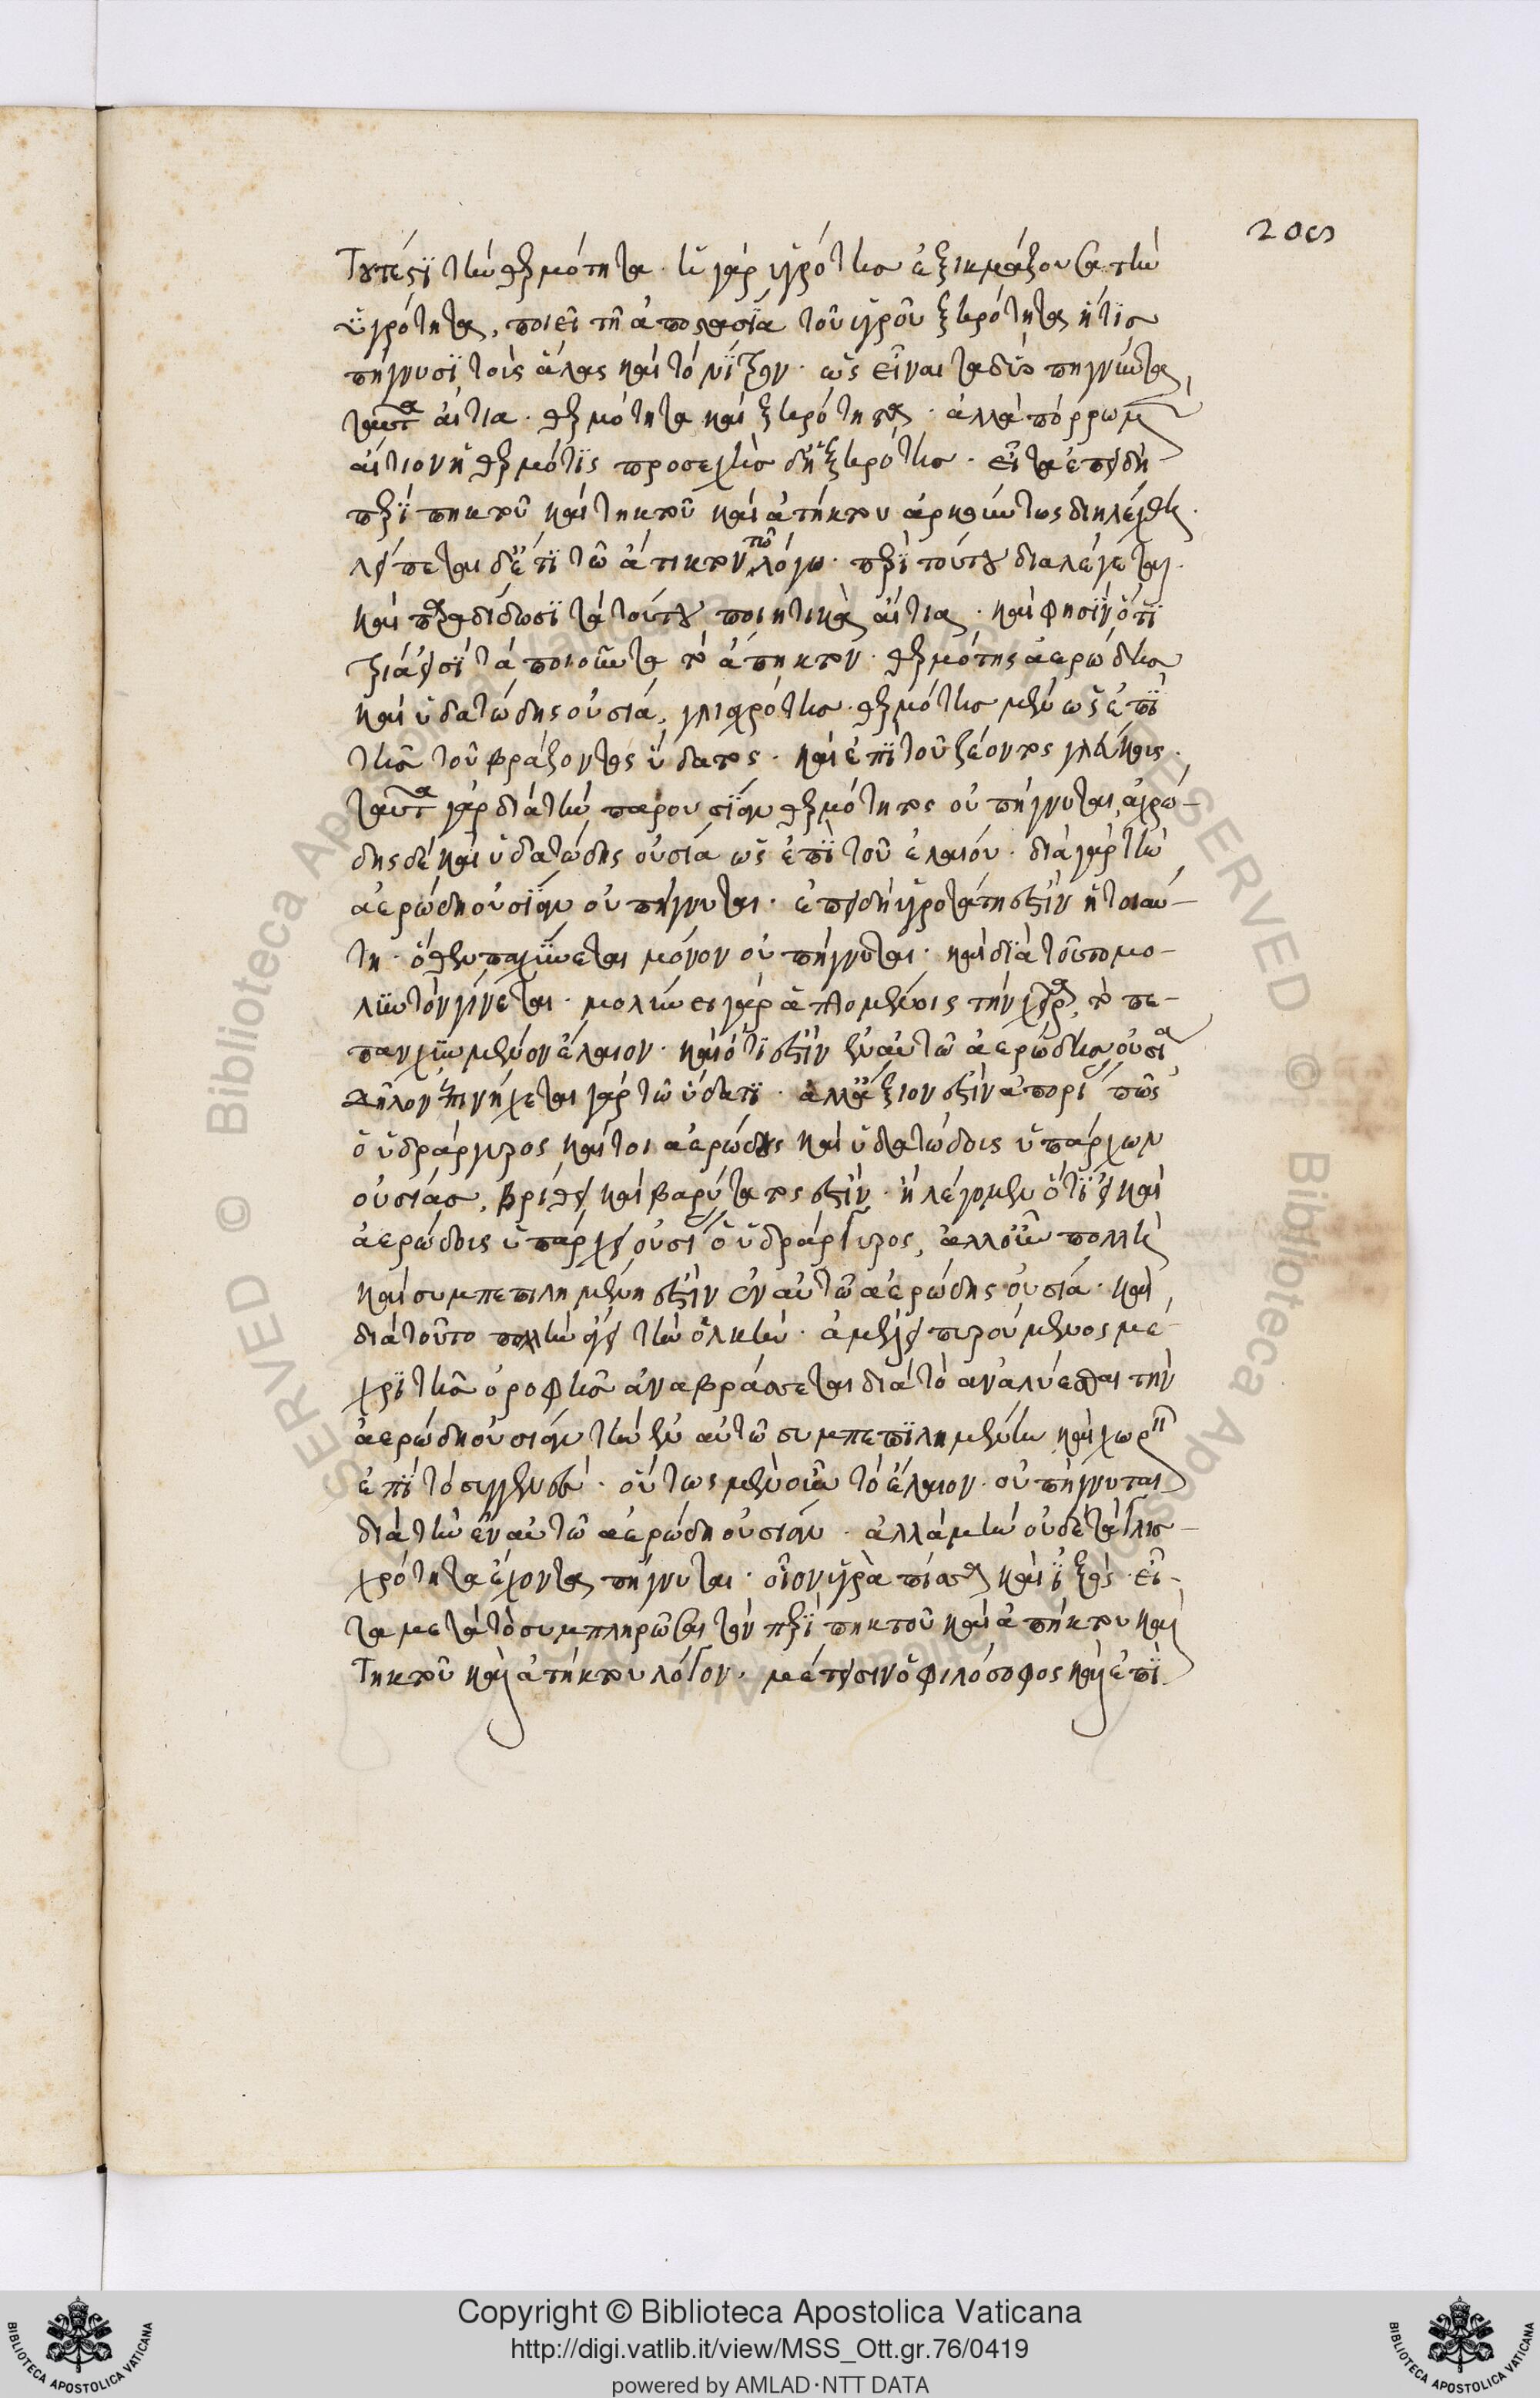 206
τουτέστι τὴν θερμότητα· ἡ γὰρ ὑγρότης ἐξικμάζουσα τὴν
ὑγρότητα, ποιεῖ τῆ ἀποστασία τοῦ ὑγροῦ ξηρότητα ἥτις
πήγνυσι τοὺς ἅλας καὶ τὸ νίτρον· ὡς εἶναι τὰ δύο πηγνύντα
ταῦτα αἴτια· θερμότητα καὶ ξηρότητα· ἀλλὰ πόρρω μὲν
αἴτιον ἡ θερμότης προσεχὴς δὲ ἡ ξηρότης· εἶτα ἐπειδὴ
περὶ πηκτοῦ καὶ τηκτοῦ καὶ ἀτήκτου ἀρκούντως διηλέχθη·
λείπεται δὲ ἔτι τῶ ἀπήκτου τῶ λόγω· περὶ τούτου διαλέγεται·
καὶ παραδίδωσι τὰ τούτου ποιητικὰ αἴτια· καὶ φησὶν ὅτι
τρία εἰσὶ τὰ ποιοῦντα τὸ ἄπηκτον· θερμότης ἀερώδης
καὶ ὑδατώδης οὐσία, γλισχρότης· θερμότης μὲν ὡς ἐπὶ
τῆς τοῦ βράζοντος ὕδατος· καὶ ἐπὶ τοῦ ζέοντος γλεύκους·
ταῦτα γὰρ διὰ τὴν παρουσίαν θερμότητος οὐ πήγνυται, ἀερώ-
δης δὲ καὶ ὑδατώδης οὐσία ὡς ἐπὶ τοῦ ἐλαίου· διὰ γὰρ τὴν
ἀερώδη οὐσίαν οὐ πήγνυται· ἐπειδὴ ὑγροτάτη ἐστὶν ἡ τοιαύ-
τη· ὅθεν παχύνεται μόνον οὐ πήγνυται· καὶ διὰ τοῦτο μο-
λυντὸν γίνεται· μολύνει γὰρ ἁπτομένοις τὴν χεῖρα, τὸ πε-
παχυμμένον ἔλαιον· καὶ ὅτι ἐστὶν ἐν αὐτῶ ἀερώδης οὐσία
δῆλον ἐπινήχεται γὰρ τῶ ὕδατι· ἀλλ' ἄξιον ἐστὶν ἀπορεῖν πῶς
ὁ ὑδράργυρος καίτοι ἀερώδους καὶ ὑδατώδους ὑπάρχων
οὐσίας, βρίθει καὶ βαρύτατος ἐστίν· ἢ λέγομεν ὅτι εἰ καὶ
ἀερώδους ὑπάρχει οὐσίας ὁ ὑδράργυρος, ἀλλ' οὖν πολλὴ
καὶ συμπεπιλημένη ἐστὶν ἐν αὐτῶ ἀερώδης οὐσία· καὶ
διὰ τοῦτο πολλὴν ἔχει τὴν ὁλκήν· ἀμέλει πυρούμενος μέ-
χρι τῆς ὀροφῆς ἀναβράσσεται διὰ τὸ ἀναλύεσθαι τὴν
ἀερώδη οὐσίαν τὴν ἐν αὐτῶ συμπεπιλημένην καὶ χωρεῖν
ἐπὶ τὸ συγγενές· οὕτως μὲν οὖν τὸ ἔλαιον οὐ πήγνυται
διὰ τὴν ἐν αὐτῶ ἀερώδη οὐσίαν· ἀλλὰ μὴν οὐδὲ τὰ γλισ-
χρότητα ἔχοντα πήγνυται· οἷον ὑγρὰ πίσσα καὶ ἰξός· εἶ-
τα μετὰ τὸ συμπληρῶσαι τὸν περὶ πηκτοῦ καὶ ἀπήκτου καὶ
τηκτοῦ καὶ ἀτήκτου λόγον· μέτεισιν ὁ φιλόσοφος καὶ ἐπὶ
Copyright © Biblioteca Apostolica Vaticana
http://digi.vatlib.it/view/MSS_Ott.gr.76/0419
powered by AMLAD·NTT DATA